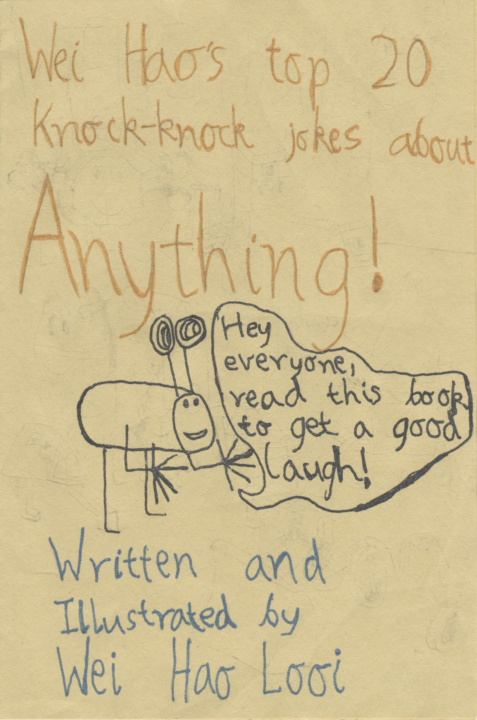 Wei Hao's top 20
Knock-knock jokes about
Anything!
Hey
everyone,
read this book
to get a good
laugh!
Written and
Illustrated by
Wei Hao Looi